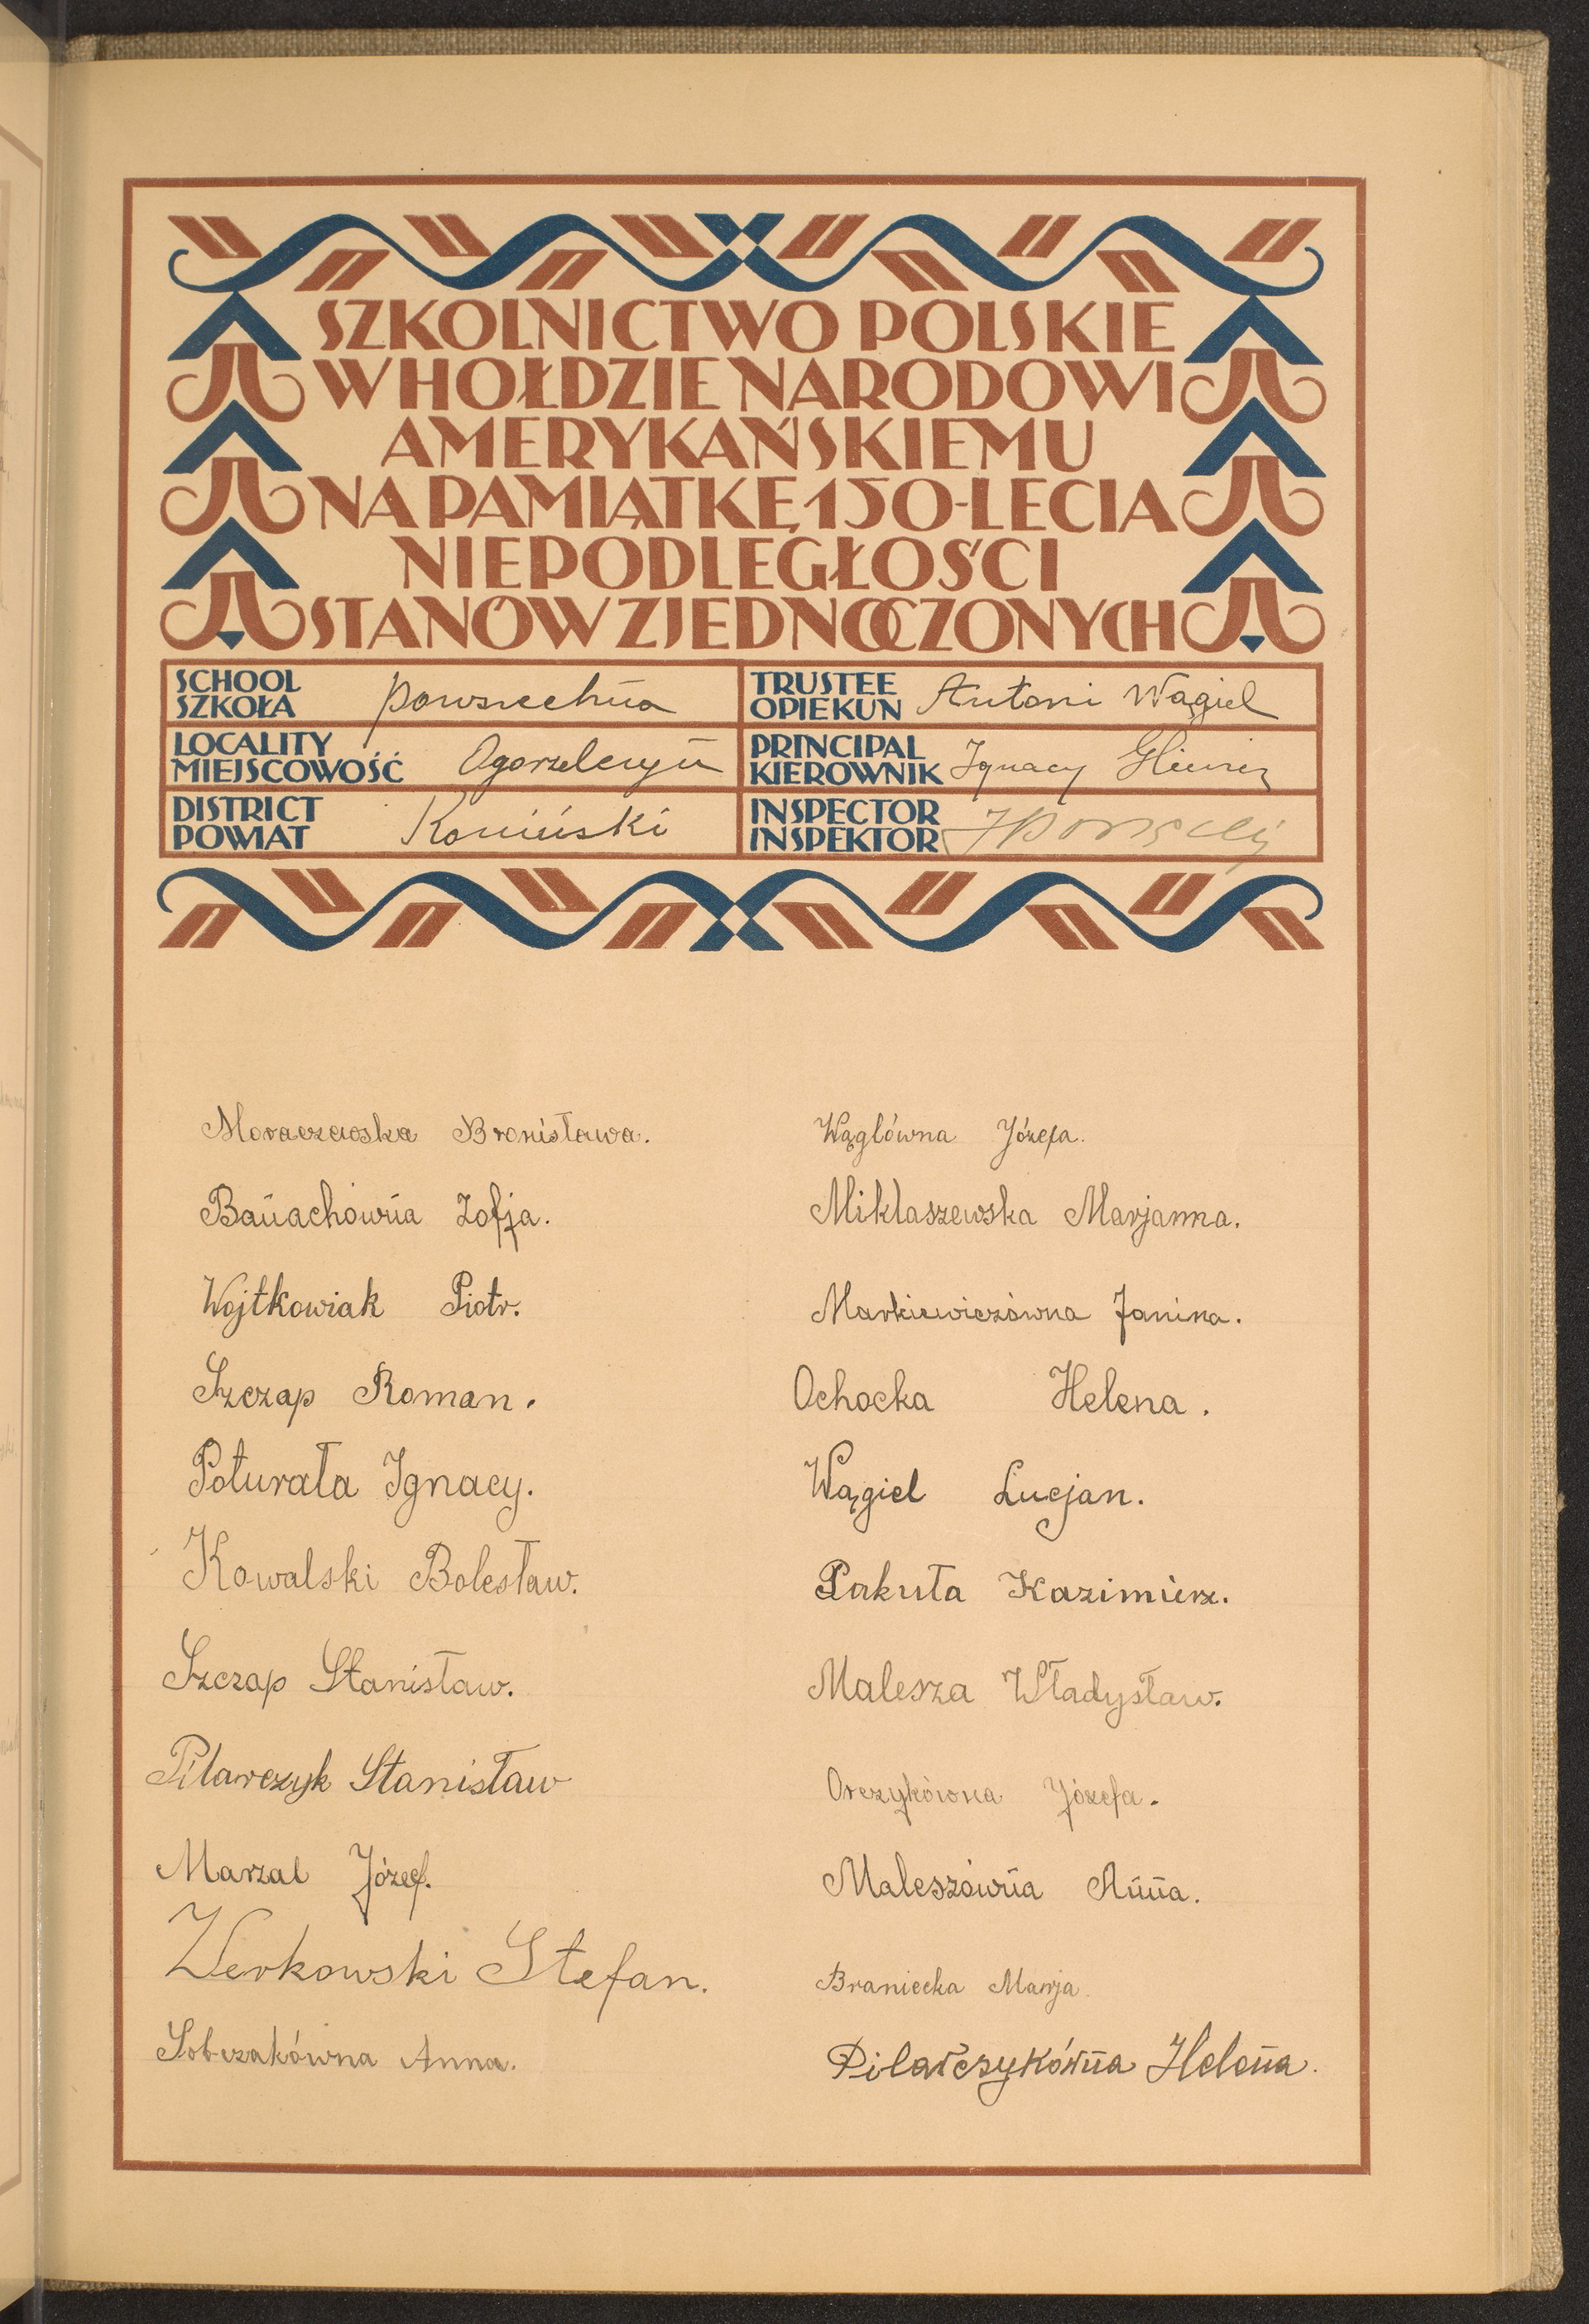 SZKOLNICTWO POLSKIE
W HOŁDZIE NARODOWI
AMERYKAŃSKIEMU
NA PAMIĄTKĘ 150-LECIA
NIEPODLEGŁOŚCI
STANÓW ZJEDNOCZONYCH
SCHOOL
SZKOŁA powszechna
LOCALITY
MIEJSCOWOŚĆ Ogorzelczyn
DISTRICT
POWIAT Koniński
TRUSTEE
OPIEKUN Antoni Wągiel
PRINCIPAL
KIEROWNIK Ignacy
INSPECTOR
INSPEKTOR
Moraczewska Bronisława.
Banachówna Zofja.
Wojtkowiak Piotr.
Szczap Roman.
Poturała Ignacy.
Kowalski Bolesław.
Szczap Stanisław.
Pilarczyk Stanisław
Marzal Józef.
Werkowski Stefan.
Sobczakówna Anna.
Wąglówna Józefa.
Miklaszewska Marjanna.
Markiewiczówna Janina.
Ochocka Helena.
Wągiel Lucjan.
Pakuła Kazimierz.
Malesza Władysław.
Orczykówna Józefa.
Maleszówna Anna.
Braniecka Marja.
Pilarczykówna Helena.